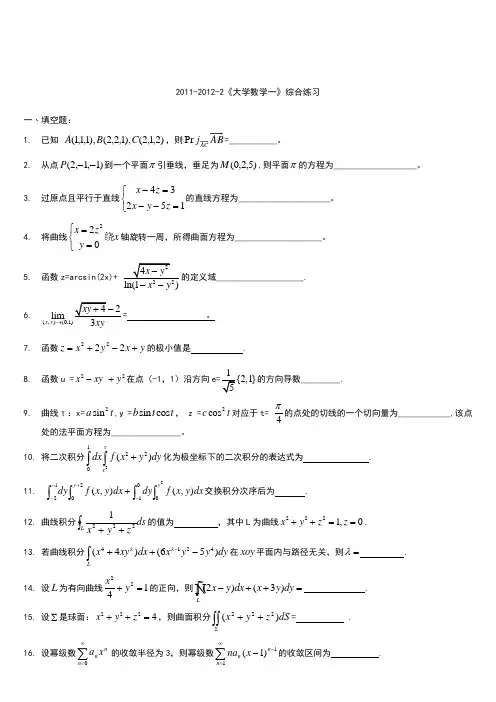 2011-2012-2《大学数学一》综合练习
一、填空题:
1. 已知 A(1,1,1), B(2,2,1), C(2,1,2),则 Pr j_{\overrightarrow{AC}} \overrightarrow{AB}=__________。
2. 从点P(2,−1,−1)到一个平面π引垂线,垂足为M(0,2,5).则平面π的方程为__________________。
3. 过原点且平行于直线 { x−4z=3 2x−y−5z=1 的直线方程为____________________。
4. 将曲线 { x=2z² y=0 绕x轴旋转一周,所得曲面方程为___________________。
5. 函数 z=arcsin(2x)+ √(4x−y²) / ln(1−x²−y²) 的定义域___________________.
6. lim_{(x,y)→(0,1)} (√(xy+4)−2) / 3xy = ________________。
7. 函数 z=x²+2y²−2x+y 的极小值是 .
8. 函数 u =x²−xy+y² 在点(-1,1)沿方向 e= 1/√5 {2,1} 的方向导数_________.
9. 曲线τ:x=a sin² t, y =b sin t cos t, z =c cos² t 对应于 t= π/4 的点处的切线的一个切向量为___________,该点
处的法平面方程为_______________。
10. 将二次积分 ∫₀¹ dx ∫_{x²}^{x} f(x²+y²)dy 化为极坐标下的二次积分的表达式为 .
11. ∫_{−2}^{−1} dy ∫₀^{y+2} f(x,y)dx + ∫_{−1}^{0} dy ∫₀^{y²} f(x,y)dx 交换积分次序后为 .
12. 曲线积分 ∮_L 1/(x²+y²+z²) ds 的值为 ,其中 L 为曲线 x²+y²+z²=1, z=0.
13. 若曲线积分 ∫_L (x⁴+4xy^λ)dx+(6x^{λ−1}y²−5y⁴)dy 在 xoy 平面内与路径无关,则λ= .
14. 设 L 为有向曲线 x²/4+y²=1 的正向,则 ∮_L (2x−y)dx+(x+3y)dy= .
15. 设∑是球面:x²+y²+z²=4,则曲面积分 ∬_Σ (x²+y²+z²)dS= .
16. 设幂级数 ∑_{n=0}^{∞} a_n x^n 的收敛半径为 3,则幂级数 ∑_{n=1}^{∞} na_n (x−1)^{n−1} 的收敛区间为 .